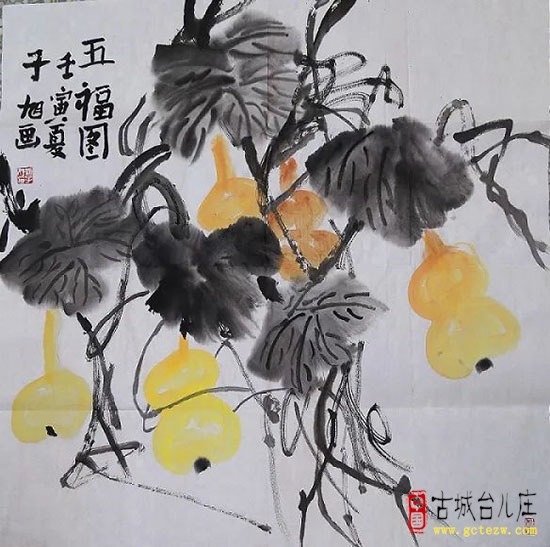 五福图
壬寅夏
子旭画
中国
古城台儿庄
www.gctezw.com